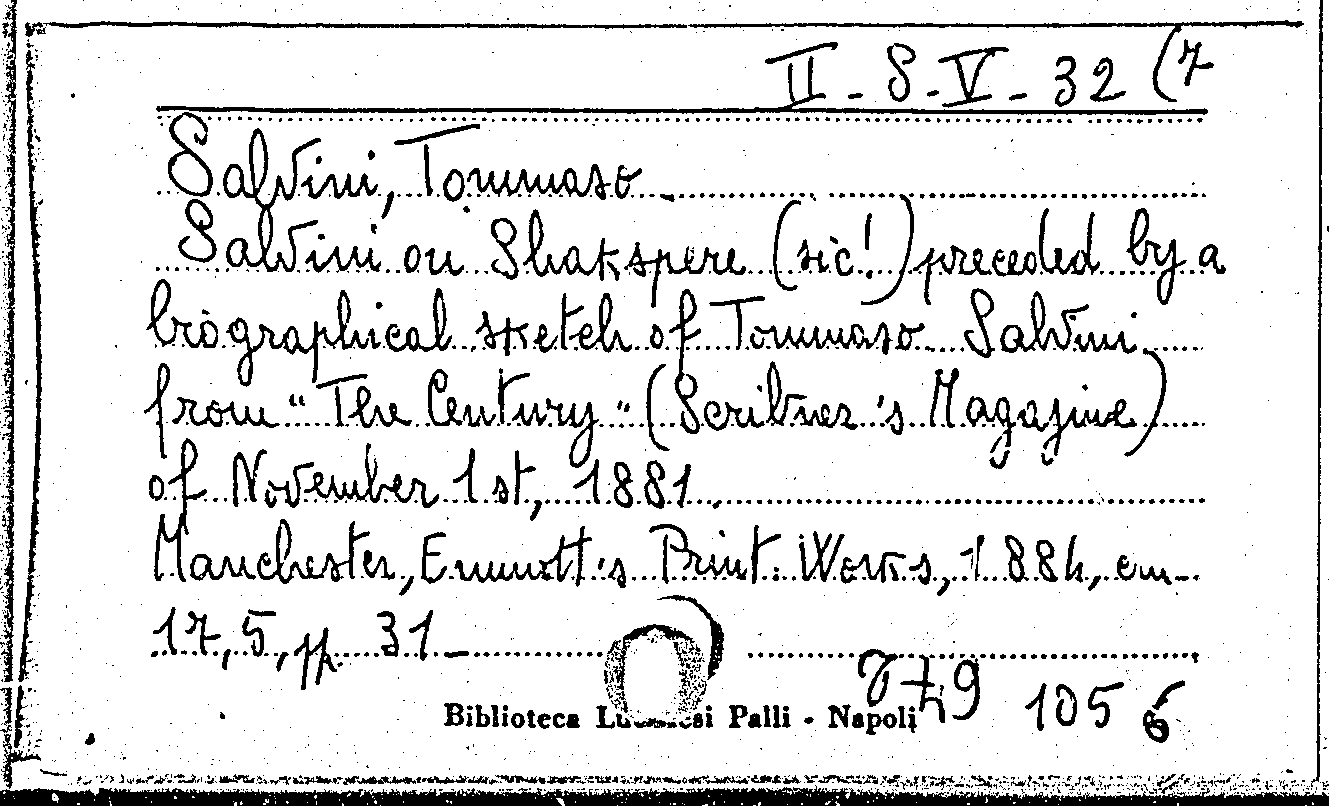 II - S - V - 32 (7
Salvini, Tommaso
Salvini on Shakspere (sic!) preceded by a
biographical sketch of Tommaso Salvini
from "The Century" (Scribner's Magazine)
of November 1st, 1881.
Manchester, Emmott's Print. Works, 1884, cm.
17,5, pp. 31 -
Biblioteca Lucchesi Palli - Napoli
105